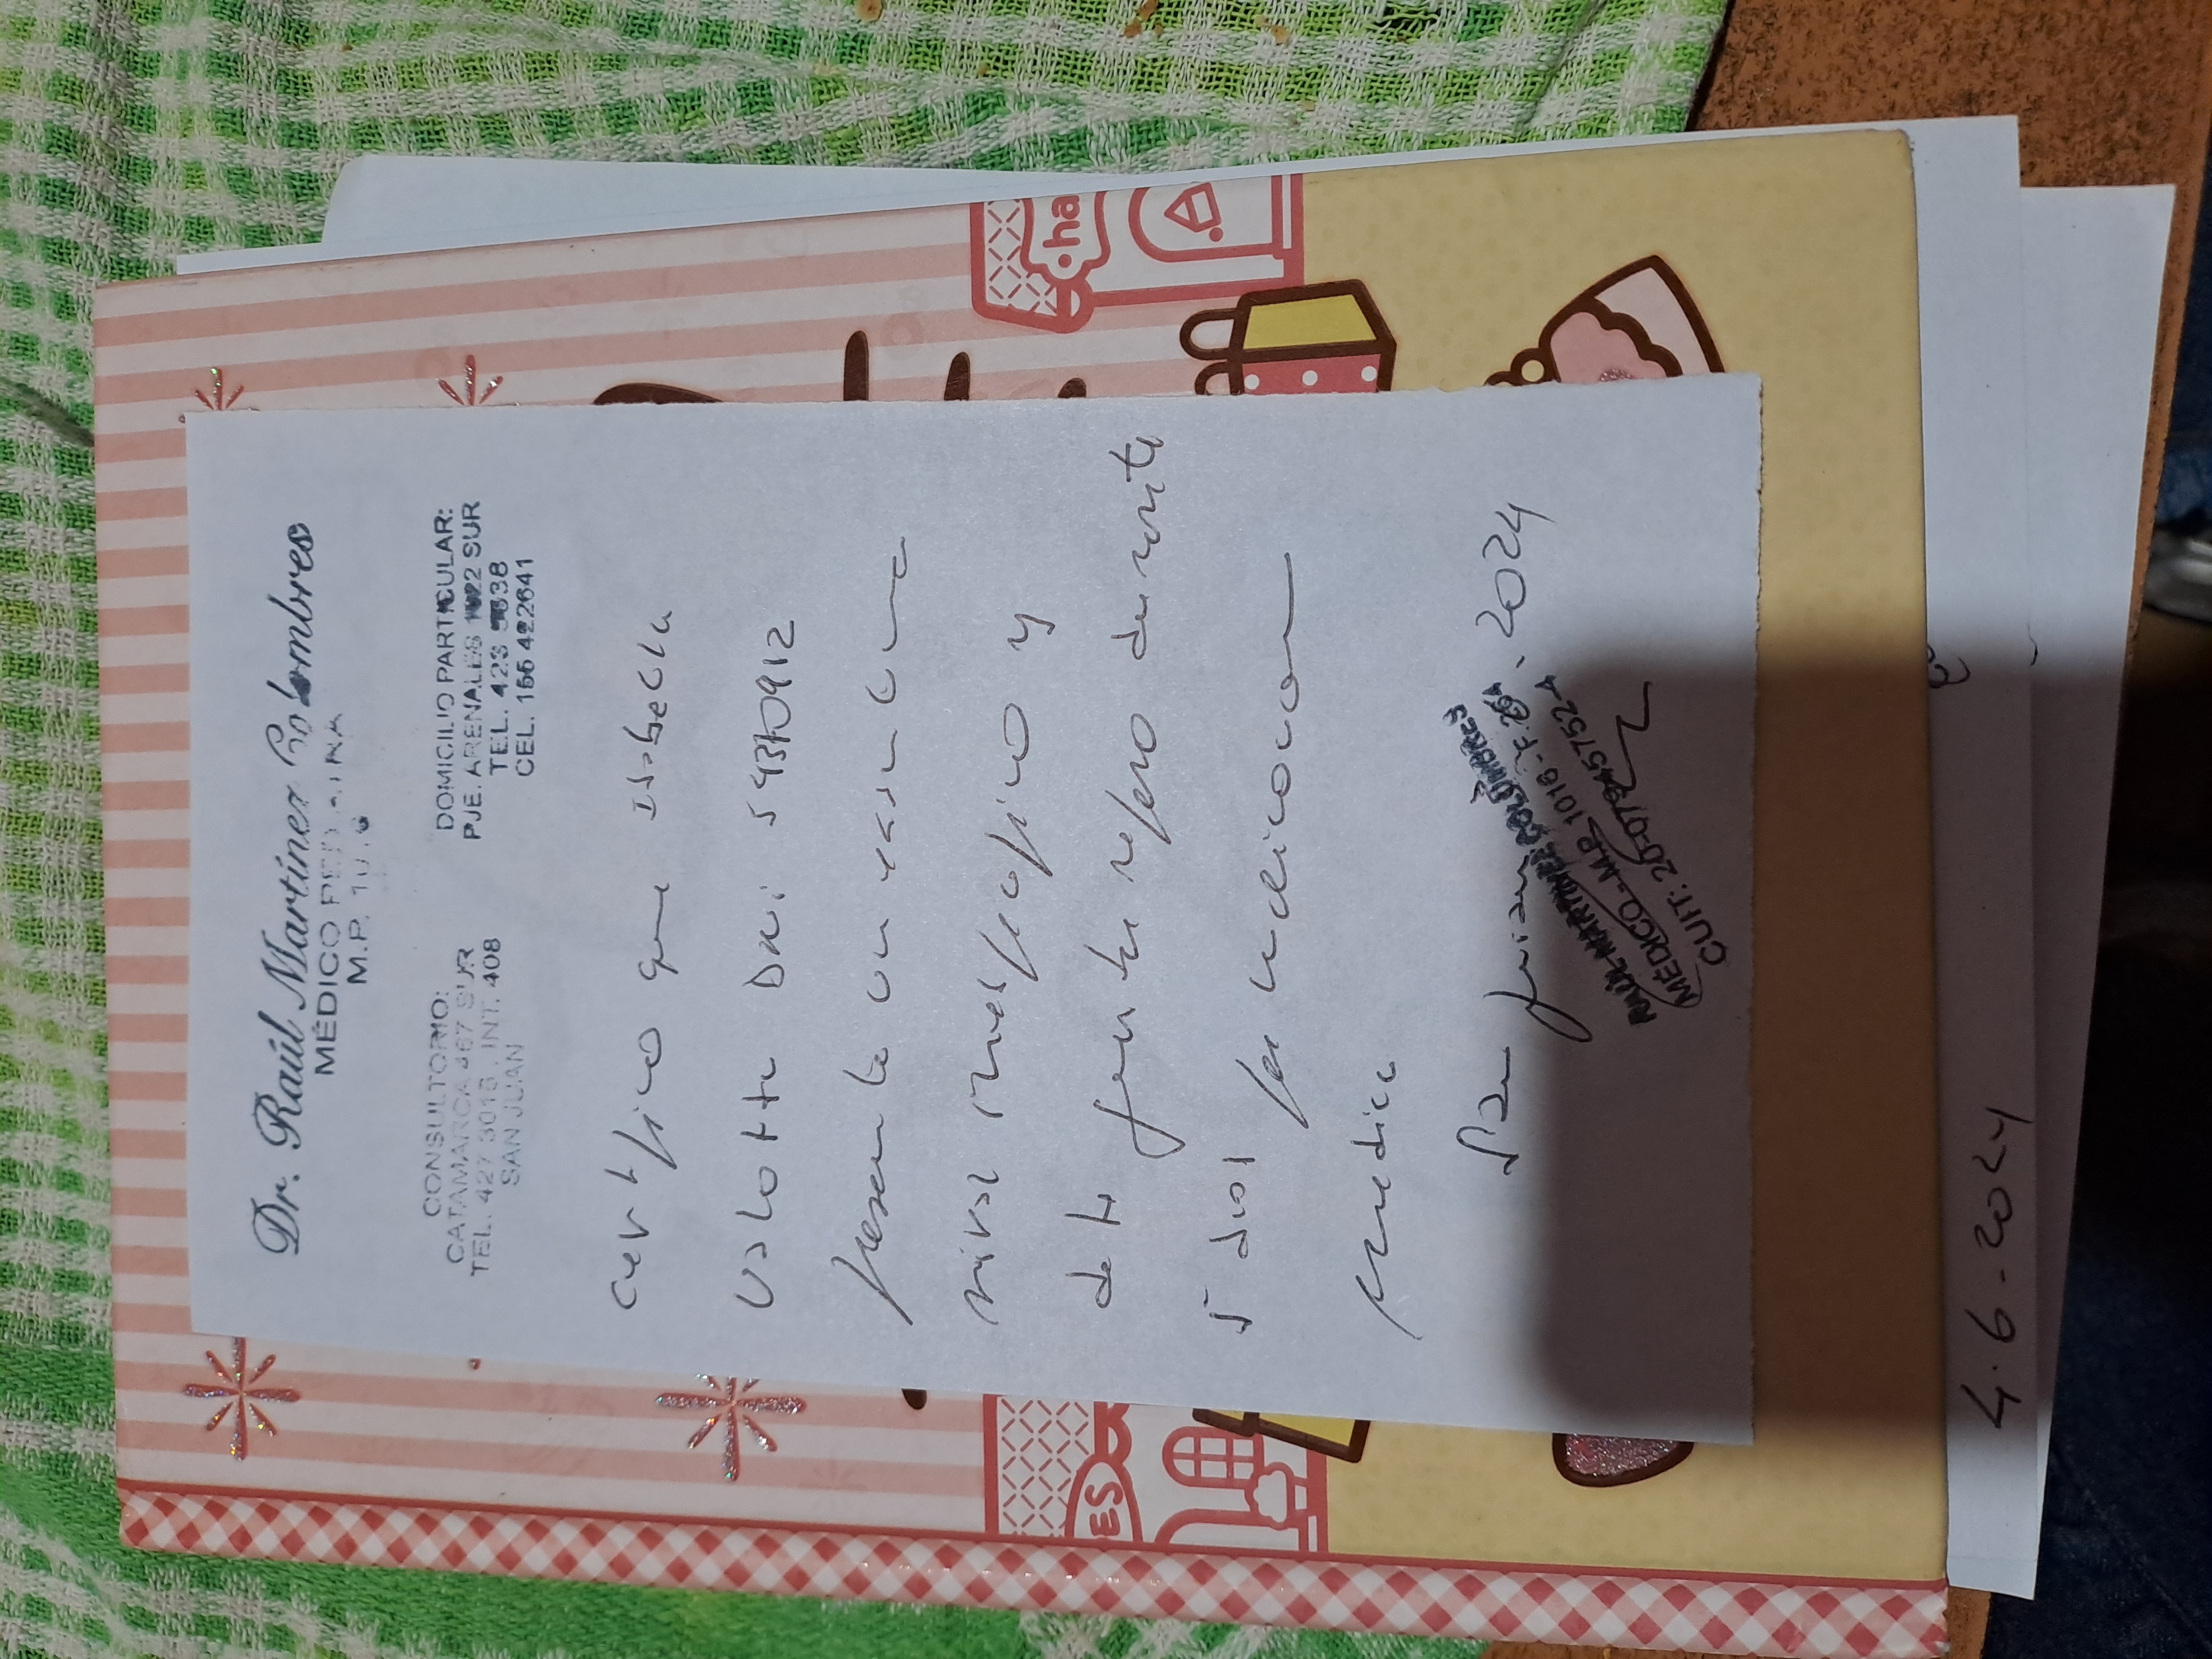 Dr. Raúl Martínez Colombres
MÉDICO PEDIATRA
M.P. 1016
CONSULTORIO:
CATAMARCA 467 SUR
TEL. 427 3016, INT. 408
SAN JUAN
DOMICILIO PARTICULAR:
PJE. ARENALES 1022 SUR
TEL. 423
CEL. 155 422641
Certifico que Isabella
Valotta DNI:
presenta un
viral inespecifico y
debe guardar reposo durante
5 dias por indicacion
medica
San Juan 2024
RAUL MARTINEZ COLOMBRES
MÉDICO - M.P. 1016
CUIT:
4.6-2024
ha
ES